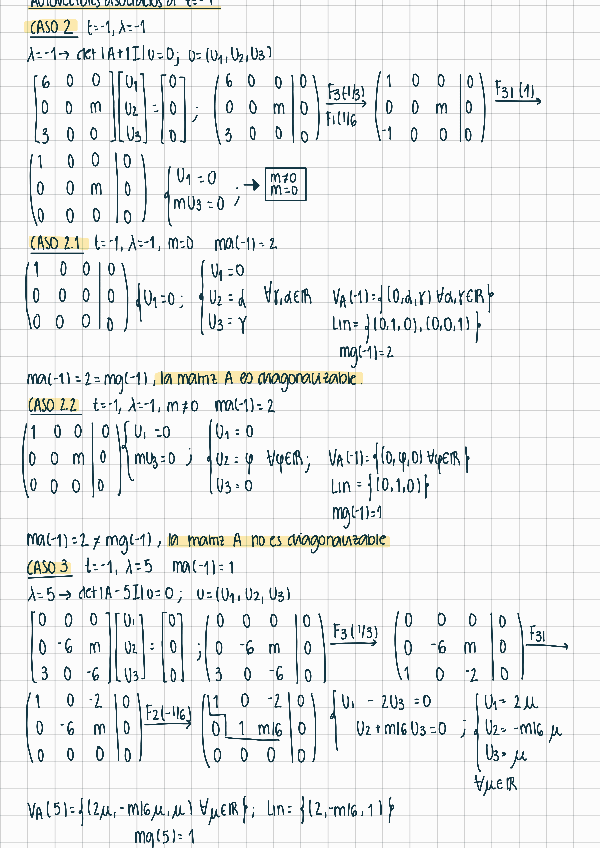 AUTOVECTORES ASOCIADOS A t=-1
CASO 2 t=-1, λ=-1
λ=-1 → det|A+1I|u=0; u=(U₁,U₂,U₃)
[6 0 0; 0 0 m; 3 0 0] [U₁; U₂; U₃] = [0; 0; 0] ; (6 0 0 | 0; 0 0 m | 0; 3 0 0 | 0) F3(-1/3) F1(1/6 → (1 0 0 | 0; 0 0 m | 0; -1 0 0 | 0) F31(1) →
(1 0 0 | 0; 0 0 m | 0; 0 0 0 | 0) { U₁=0; mU₃=0 ; → m≠0 m=0
CASO 2.1 t=-1, λ=-1, m=0 ma(-1)=2
(1 0 0 | 0; 0 0 0 | 0; 0 0 0 | 0) { U₁=0 ; { U₁=0; U₂=α; U₃=γ ∀γ,α∈ℝ VA(-1)={(0,α,γ) ∀α,γ∈ℝ}
Lin={(0,1,0),(0,0,1)}
mg(-1)=2
ma(-1)=2=mg(-1), la matriz A es diagonalizable
CASO 2.2 t=-1, λ=-1, m≠0 ma(-1)=2
(1 0 0 | 0; 0 0 m | 0; 0 0 0 | 0) { U₁=0; mU₃=0 ; { U₁=0; U₂=φ; U₃=0 ∀φ∈ℝ; VA(-1)={(0,φ,0) ∀φ∈ℝ}
Lin={(0,1,0)}
mg(-1)=1
ma(-1)=2≠mg(-1), la matriz A no es diagonalizable
CASO 3 t=-1, λ=5 ma(-1)=1
λ=5 → det|A-5I|u=0; u=(U₁,U₂,U₃)
[0 0 0; 0 -6 m; 3 0 -6] [U₁; U₂; U₃] = [0; 0; 0] ; (0 0 0 | 0; 0 -6 m | 0; 3 0 -6 | 0) F3(1/3) → (0 0 0 | 0; 0 -6 m | 0; 1 0 -2 | 0) F31 →
(1 0 -2 | 0; 0 -6 m | 0; 0 0 0 | 0) F2(-1/6) → (1 0 -2 | 0; 0 1 m/6 | 0; 0 0 0 | 0) { U₁-2U₃=0; U₂+m/6U₃=0 ; { U₁=2μ; U₂=-m/6 μ; U₃=μ
∀μ∈ℝ
VA(5)={(2μ,-m/6μ,μ) ∀μ∈ℝ}; Lin={(2,-m/6,1)}
mg(5)=1